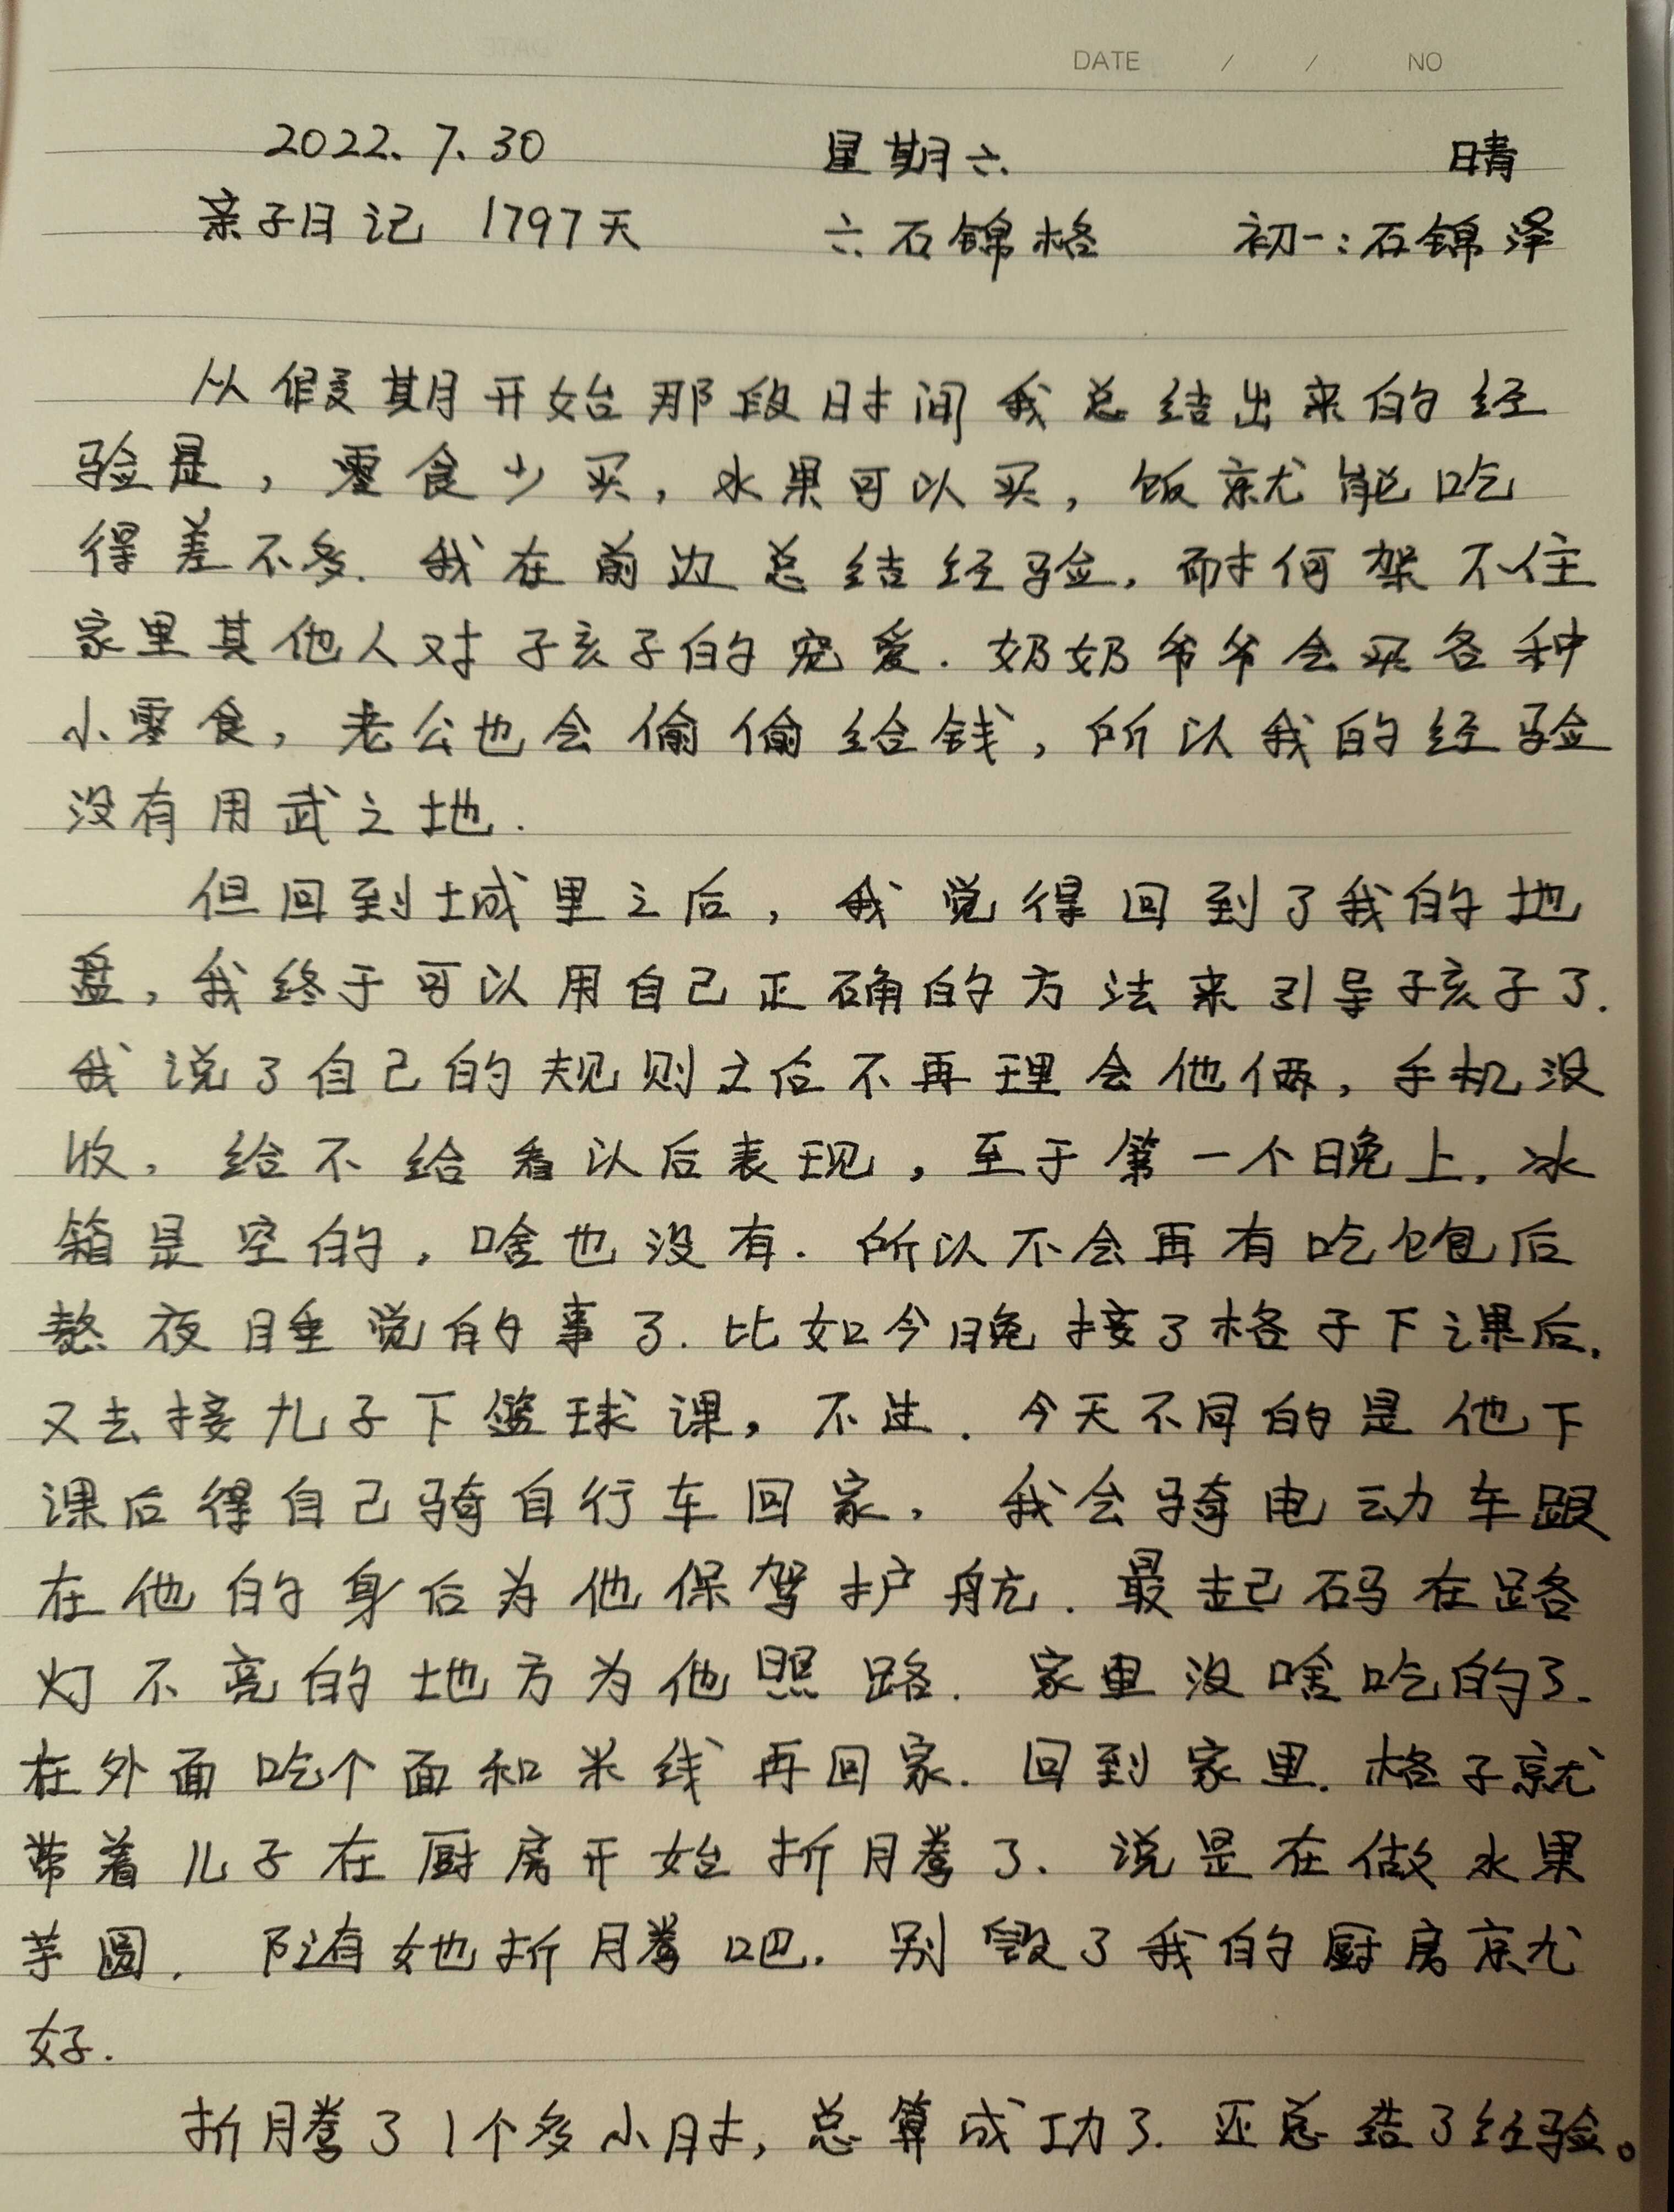 DATE / / NO
2022.7.30 星期六 晴
亲子日记 1797天 六石锦格 初一:石锦泽
从假期开始那段时间我总结出来的经
验是,零食少买,水果可以买,饭就能吃
得差不多.我在前边总结经验,耐何架不住
家里其他人对孩子的宠爱.奶奶爷爷会买各种
小零食,老公也会偷偷给钱,所以我的经验
没有用武之地.
但回到城里之后,我觉得回到了我的地
盘,我终于可以用自己正确的方法来引导孩子了.
我说了自己的规则之后不再理会他俩,手机没
收,给不给看以后表现,至于第一个晚上,冰
箱是空的,啥也没有.所以不会再有吃饱后
熬夜睡觉的事了.比如今晚接了格子下课后,
又去接儿子下篮球课,不过.今天不同的是他下
课后得自己骑自行车回家,我会骑电动车跟
在他的身后为他保驾护航.最起码在路
灯不亮的地方为他照路.家里没啥吃的了.
在外面吃个面和米线再回家.回到家里.格子就
带着儿子在厨房开始折腾了.说是在做水果
芋圆.随她折腾吧.别毁了我的厨房就
好.
折腾了1个多小时,总算成功了.还总结了经验。